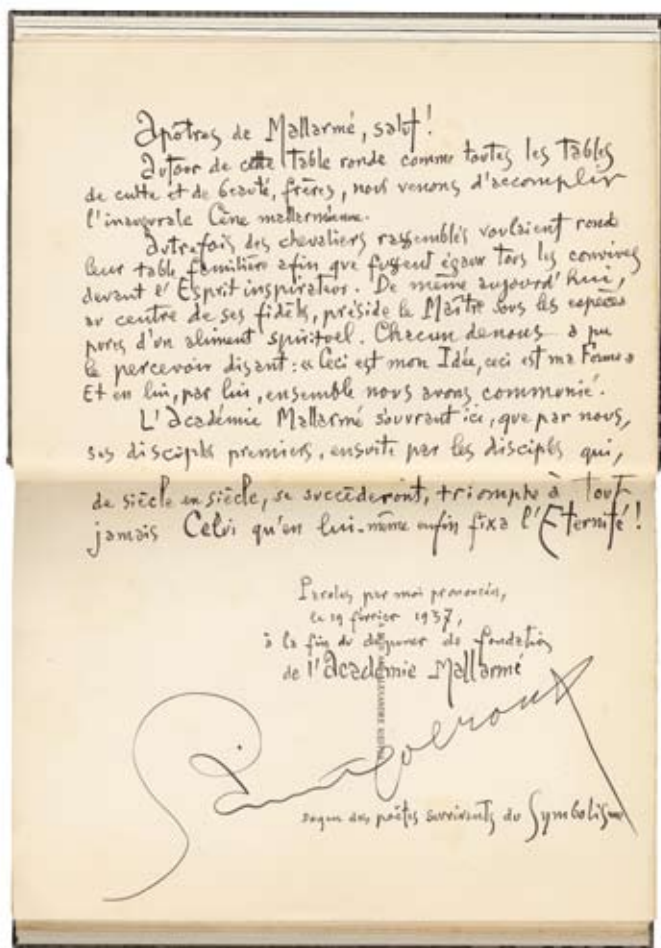 Apôtres de Mallarmé, salut !
Autour de cette table ronde comme toutes les tables
de culte et de beauté, frères, nous venons d'accomplir
l'inaugurale Cène mallarméenne.
Autrefois des chevaliers rassemblés voulaient ronde
leur table familière afin que fussent égaux tous les convives
devant l'Esprit inspirateur. De même aujourd'hui,
au centre de ses fidèles, préside le Maître sous les espèces
pures d'un aliment spirituel. Chacun de nous a pu
le percevoir disant : « Ceci est mon Idée, ceci est ma Forme »
Et en lui, par lui, ensemble nous avons communié.
L'Académie Mallarmé s'ouvrant ici, que par nous,
ses disciples premiers, ensuite par les disciples qui,
de siècle en siècle, se succèderont, triomphe à tout
jamais Celui qu'en lui-même enfin fixa l'Eternité !
Paroles par moi prononcées,
le 19 février 1937,
à la fin du déjeuner de fondation
de l'Académie Mallarmé
Saint-Pol-Roux
doyen des poètes survivants du Symbolisme